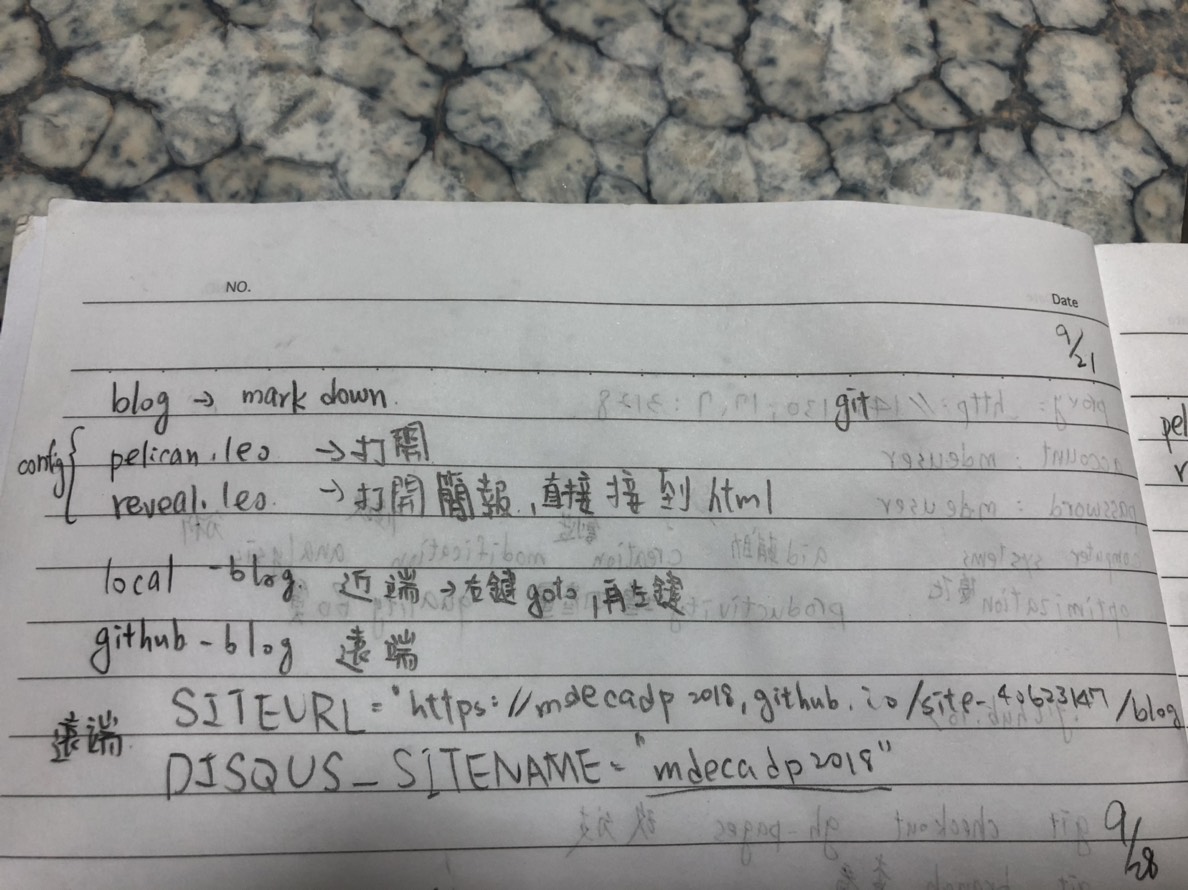 NO.
Date
9/21
blog → mark down.
git
config { pelican.leo → 打開
reveal.leo. → 打開簡報,直接接到html
local -blog. 近端 → 右鍵 goto,再左鍵
github-blog 遠端
遠端 SITEURL = "https://mdecadp2018.github.io/site-40623147/blog
DISQUS_SITENAME = "mdecadp2018"
9/28
pel
r